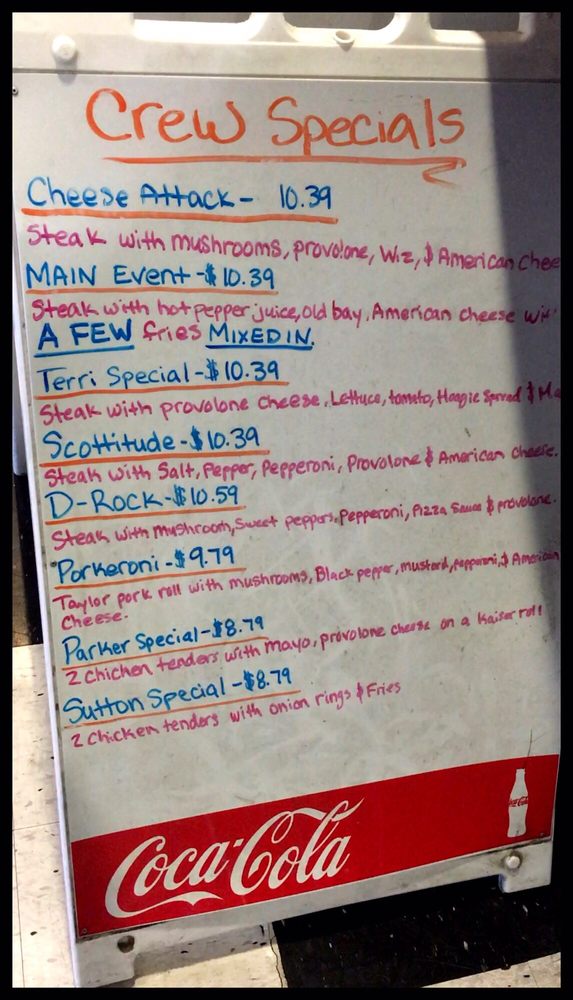 Crew Specials
Cheese Attack - 10.39
Steak with mushrooms, provolone, Wiz, & American Chee
MAIN Event - $10.39
Steak with hot pepper juice, old bay, American cheese wi
A FEW fries MIXED IN.
Terri Special - $10.39
Steak with provolone cheese, Lettuce, tomato, Hoagie Spread & Ma
Scottitude - $10.39
Steak with Salt, Pepper, Pepperoni, Provolone & American cheese.
D-Rock - $10.59
Steak with mushroom, Sweet peppers, Pepperoni, Pizza Sauce & provolone.
Porkeroni - $9.79
Taylor pork roll with mushrooms, Black pepper, mustard, pepperoni, & American
Cheese.
Parker Special - $8.79
2 chicken tenders with mayo, provolone cheese on a Kaiser roll
Sutton Special - $8.79
2 Chicken tenders with onion rings & Fries
Coca-Cola